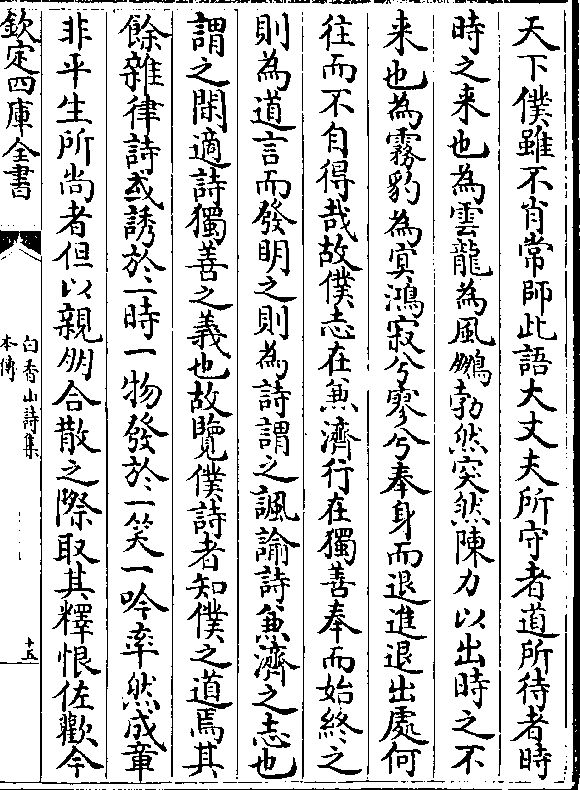 天下僕雖不肖常師此語大丈夫所守者道所待者時
時之来也為雲龍為風鵬勃然突然陳力以出時之不
来也為霧豹為冥鴻寂兮寥兮奉身而退進退出處何
往而不自得哉故僕志在兼濟行在獨善奉而始終之
則為道言而發明之則為詩謂之諷諭詩兼濟之志也
謂之閑適詩獨善之義也故覽僕詩者知僕之道焉其
餘雜律詩或誘於一時一物發於一笑一吟率然成章
非平生所尚者但以親朋合散之際取其釋恨佐歡今
欽定四庫全書
白香山詩集
本傳
十五